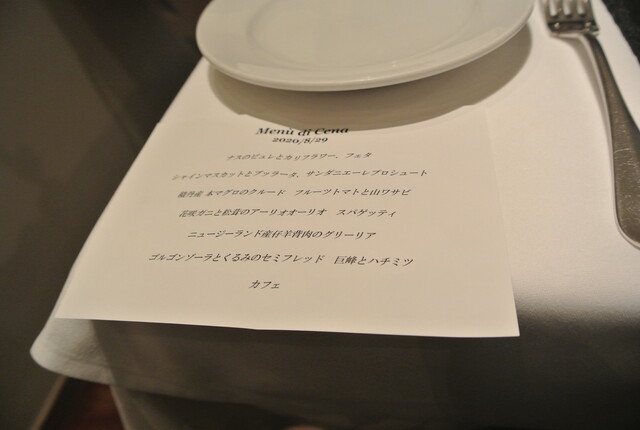 Menù di Cena
2020/8/29
ナスのピュレとカリフラワー、フェタ
シャインマスカットとブッラータ、サンダニエーレプロシュート
本マグロのクルード　フルーツトマトと山ワサビ
花咲ガニと松茸のアーリオオーリオ　スパゲッティ
ニュージーランド産仔羊背肉のグリーリア
ゴルゴンゾーラとくるみのセミフレッド　巨峰とハチミツ
カフェ